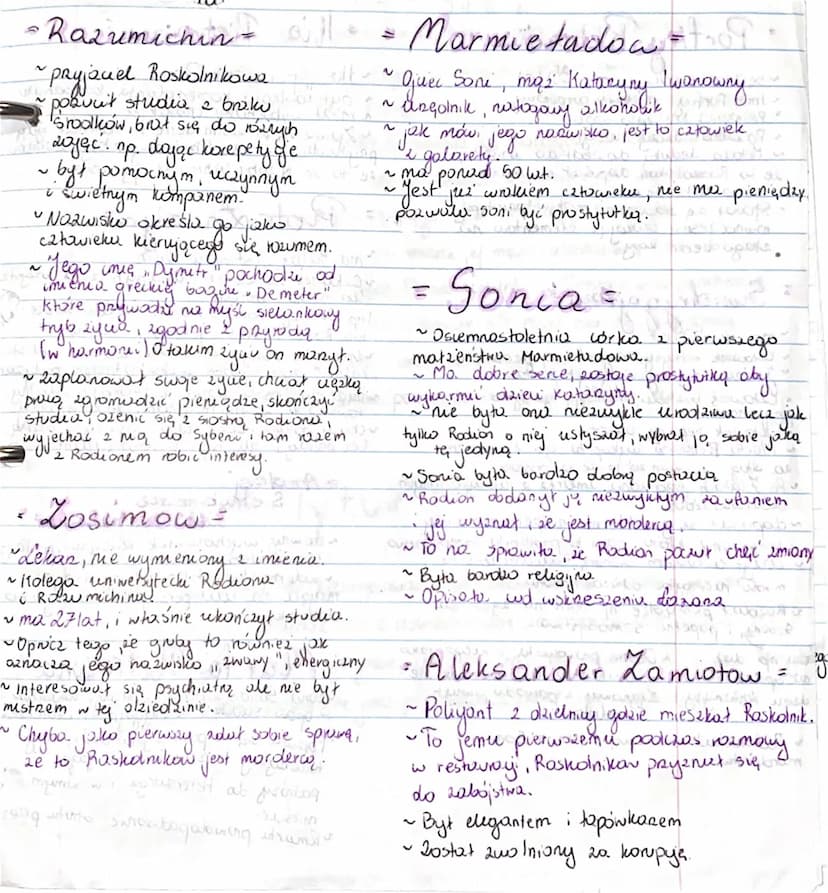 = Razumichin =
~ przyjaciel Raskolnikowa
~ porzucił studia z braku
środków, brał się do różnych
zajęć. np. dając korepetycje
~ był pomocnym, uczynnym
i świetnym kompanem.
~ Nazwisko określa go jako
człowieka kierującego się rozumem.
~ Jego imię „Dymitr" pochodzi od
imienia greckiej bogini „Demeter"
które przywodzi na myśl sielankowy
tryb życia, zgodnie z przyrodą
(w harmonii) O takim życiu on marzył.
~ zaplanował swoje życie, chciał ciężką
pracą zgromadzić pieniądze, skończyć
studia, ożenić się z siostrą Rodiona,
wyjechać z nią do Syberii i tam razem
z Rodionem robić interesy.
= Zosimow =
~ Lekarz, nie wymieniony z imienia.
~ Kolega uniwersytecki Rodiona
i Razumichina.
~ ma 27 lat, i właśnie ukończył studia.
~ Oprócz tego, że gruby to również jak
oznacza jego nazwisko „żwawy", energiczny
~ Interesował się psychiatrią ale nie był
mistrzem w tej dziedzinie.
~ Chyba jako pierwszy zdał sobie sprawę,
że to Raskolnikow jest mordercą.
= Marmieładow =
~ Ojciec Soni, mąż Katarzyny Iwanowny
~ urzędnik, nałogowy alkoholik
~ jak mówi jego nazwisko, jest to człowiek
z galarety.
~ ma ponad 50 lat.
~ Jest już wrakiem człowieka, nie ma pieniędzy
pozwala Soni być prostytutką.
= Sonia =
~ Osiemnastoletnia córka z pierwszego
małżeństwa Marmieładowa.
~ Ma dobre serce, zostaje prostytutką aby
wykarmić dzieci Katarzyny.
~ nie była ona niezwykle urodziwa lecz jak
tylko Rodion o niej usłyszał, wybrał ją sobie jako
tę jedyną.
~ Sonia była bardzo dobrą postacią
~ Rodion obdarzył ją niezwykłym zaufaniem
i jej wyznał, że jest mordercą.
~ To na sprawiła, że Rodion poczuł chęć zmiany
~ Była bardzo religijna
~ Opisała cud wskrzeszenia Łazarza
= Aleksander Zamiotow =
~ Policjant z dzielnicy gdzie mieszkał Raskolnik.
~ To jemu pierwszemu podczas rozmowy
w restauracji, Raskolnikow przyznał się
do zabójstwa.
~ Był elegantem i łapówkarzem
~ Został zwolniony za korupcję